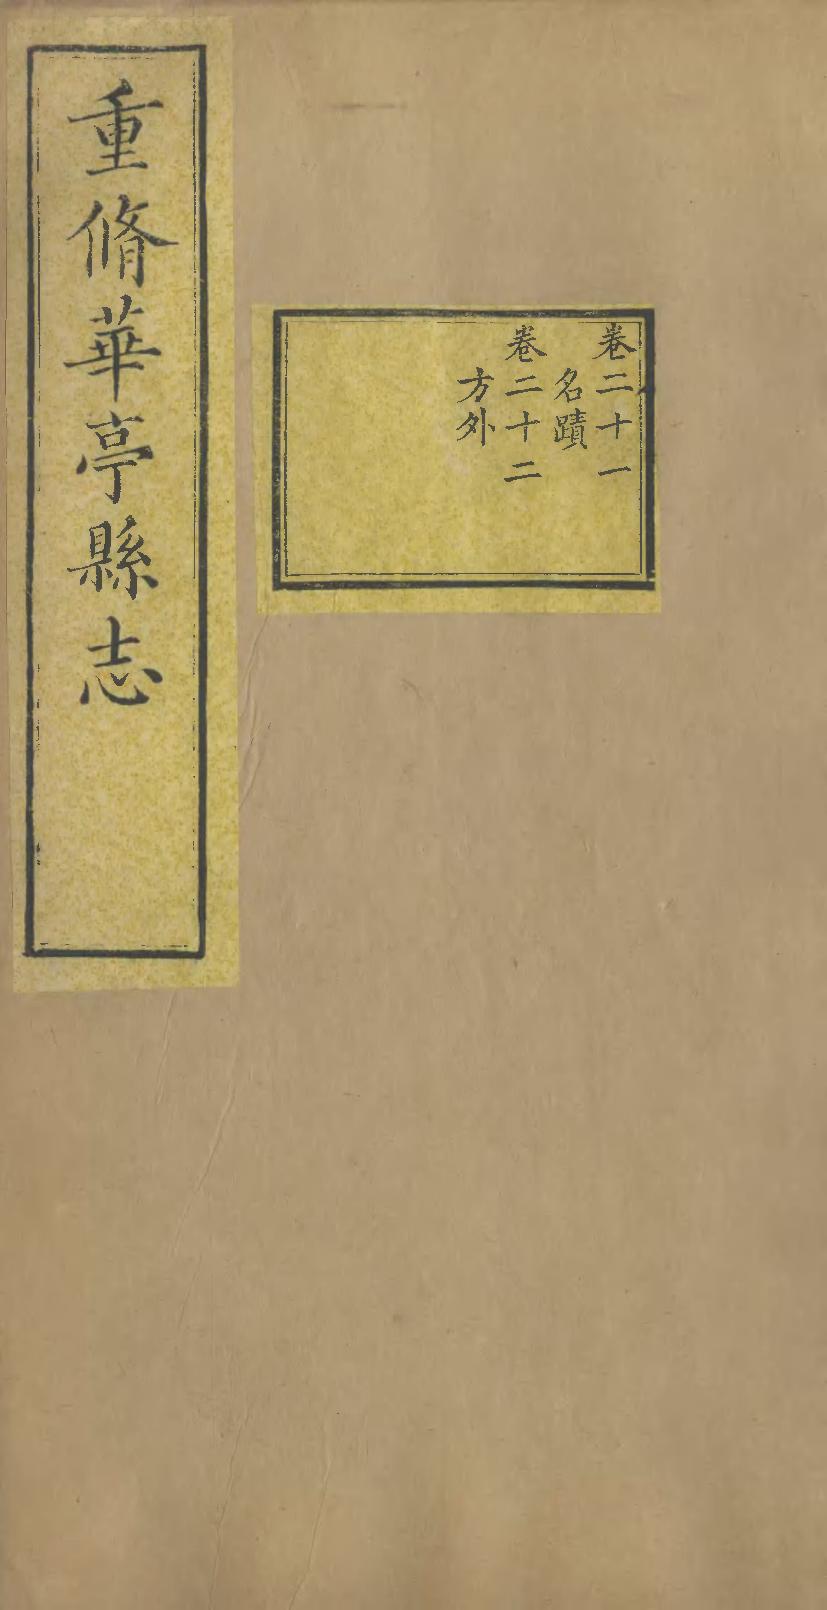 重脩華亭縣志
卷二十一
名蹟
卷二十二
方外